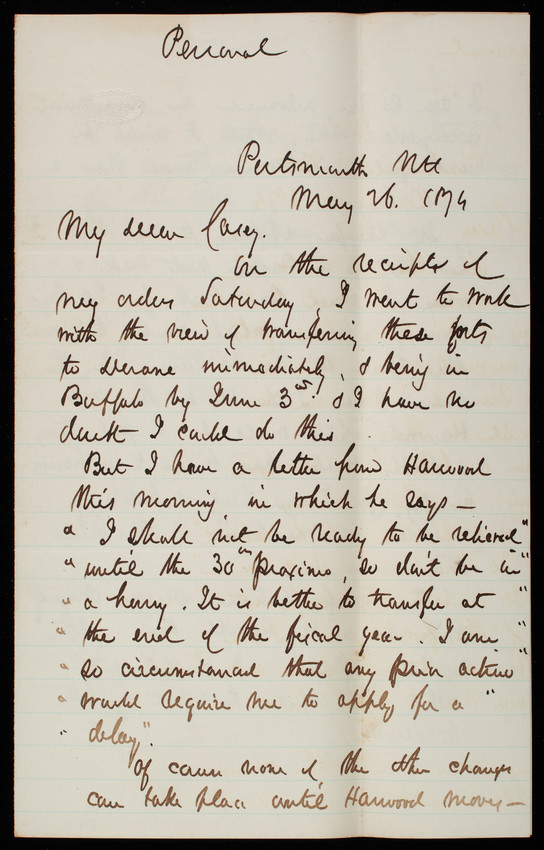 Personal
Portsmouth NH
May 26. 1874
My dear Casey.
On the receipts of
my orders Saturday, I went to work
with the view of transferring these forts
to immediately, & being in
Buffalo by June 3rd. & I have no
doubt I could do this.
But I have a letter from Harwood
this morning, in which he says —
" I shall not be ready to be relieved "
" until the 30th proximo, so don't be in "
" a hurry. It is better to transfer at "
" the end of the fiscal year. I am "
" so circumstanced that any prior action "
" would require me to apply for a "
" delay".
Of course none of the other changes
can take place until Harwood moves —